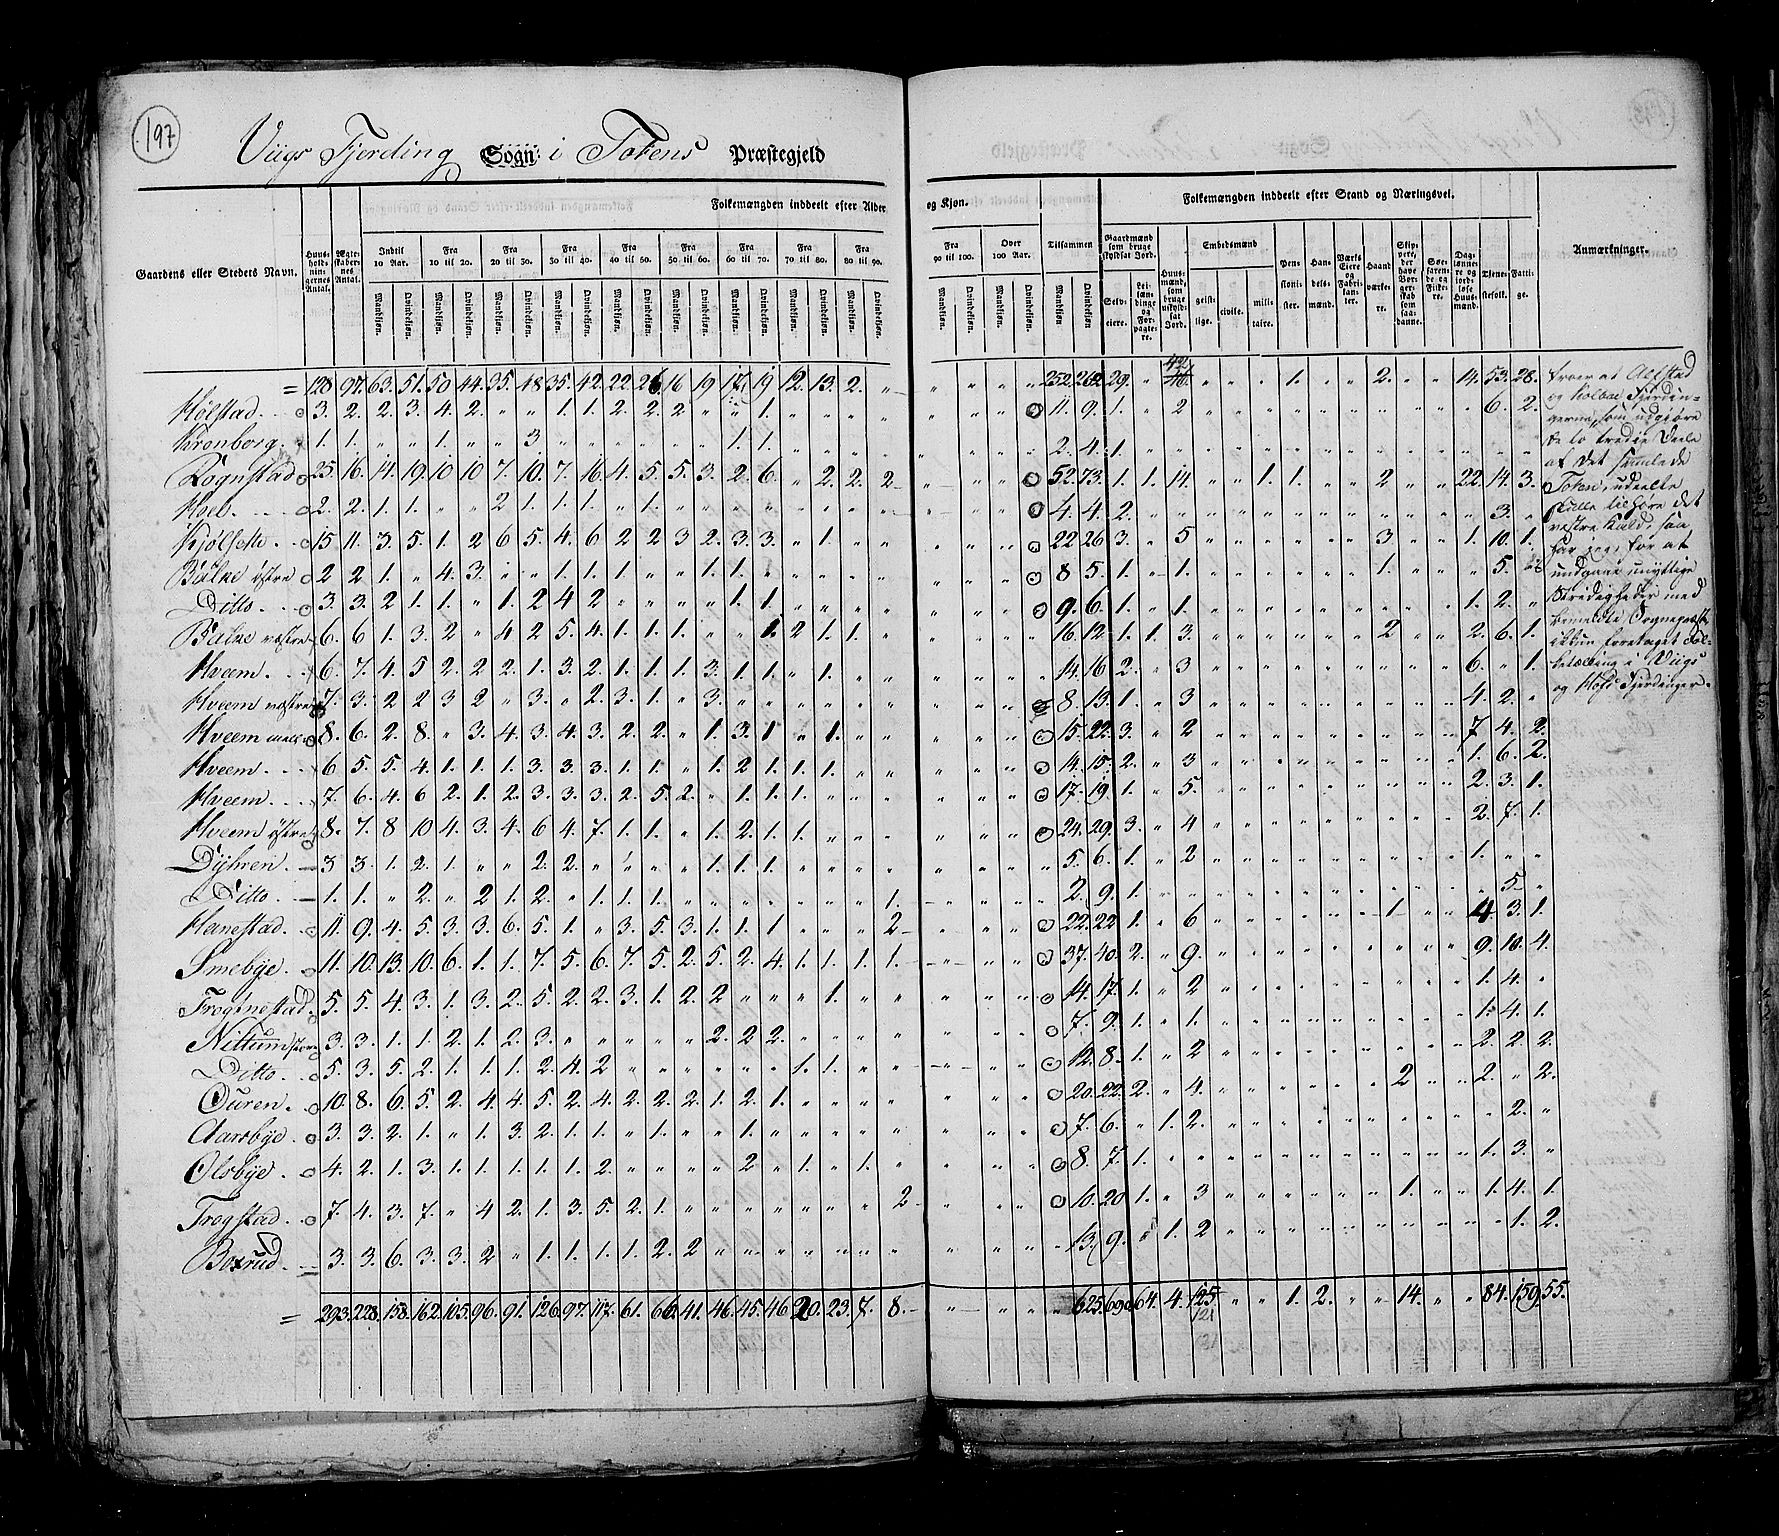 197
Viigs Fjerding Sogn i Totens Præstegjeld
Folkemængden inddeelt efter Alder og Kjøn.
Folkemængden inddeelt efter Stand og Næringsvei.
Gaardens eller Stedets Navn.
Huusholdningernes Antal.
Ægteskabernes Antal.
Indtil 10 Aar.
Fra 10 til 20.
Fra 20 til 30.
Fra 30 til 40.
Fra 40 til 50.
Fra 50 til 60.
Fra 60 til 70.
Fra 70 til 80.
Fra 80 til 90.
Fra 90 til 100.
Over 100 Aar.
Tilsammen
Mandkjøn. Qvindekjøn.
Gaardmænd som bruge skyldsat Jord.
Selveiere.
Leilændinge og Forpagtere.
Huusmænd, som bruge uskyldsat Jord.
Embedsmænd
geistlige.
civile.
militaire.
Pensionister.
Handelsmænd.
Værks Eiere og Fabrikanter.
Haandværkere.
Skippere, der have Borgerskab som saadanne.
Søefarende og Fiskere.
Daglønnere og jordløse Huusmænd.
Tjenestefolk.
Fattige.
Anmærkninger.
= 128 97. 63. 51. 50 44. 35. 48 35. 42. 22. 26 16 19 17. 19. 12. 13. 2. „ „ „ „ „ 252. 262 29. „ 42 46 „ „ „ 1. „ „ 2. „ „ 14. 53. 28.
Hølstad. 3. 2. 2. 3. 4. 2. „ „ 1. 1. 2. 2. 2. „ „ 1. „ „ „ „ „ „ „ 11. 9. 1. „ 2 „ „ „ „ „ „ „ „ „ „ 6. 2.
Kronborg. 1. 1. „ „ 1. „ „ 3 „ „ „ „ „ „ 1. 1. „ „ „ „ „ „ „ 2. 4. 1.
Rognstad 25. 16. 14. 19. 10 10 7. 10. 7. 16. 4. 5. 5. 3. 2. 6. „ 2. 2. 2 52. 73. 1. 1. 14. „ „ 1. 1. „ „ 2 „ „ 22. 14. 3.
Hoel 2. 2. 1. 1. „ „ 2 1. 1. 1. „ 1. „ „ „ „ „ „ „ „ 4. 4. 2. „ „ „ „ „ „ „ „ „ „ „ „ 3. „
Kjølseth 15 11. 3. 5. 1. 2 6 5. 4. 6 2 2 3 2. 3. 3. „ 1. „ „ 22 26 3. „ 5 „ „ „ „ „ „ 3. „ „ 1. 10. 1.
Balke østre 2 2 1. „ 4. 3. „ „ 1. 1. 1. „ „ 1. 1. „ „ „ „ „ 8 5. 1. „ 1. „ „ „ „ „ „ 1. „ „ „ 5.
Ditto. 3. 3. 2 1. 1. „ 1. 2 4 2 „ „ „ „ 1. 1. „ „ „ „ 9. 6. 1. „ 1. „ „ „ „ „ „ „ „ „ 1. 2. „
Balke væstre 6. 6 1. 3. 2 „ 4 2 5. 4. 1. 1. 1. „ „ 1. 2 1. 1. „ 16. 12. 1. 1. 3. „ „ „ „ „ „ 2 „ „ 2. 6. 1.
Hveem. 6. 7. 4. 5 2. 2 2. 1. 3. 2. 1. 1. 1. 3. 1. 1. „ 1. „ „ 14. 16 2. „ 3 „ „ „ „ „ „ „ „ „ 6. „ 1.
Hveem væstre 7. 3. 2 2 3 2 „ 3. „ 2. 3. 1. „ 3. „ „ „ „ „ „ 8. 13. 1. „ 3 „ „ „ „ „ „ „ „ „ 4. 2. „
Hveem 8. 6. 2. 8. „ 3. 4. 3. 4. 3. 2. 2. „ 1. 3. 1 „ 1. „ „ 15. 22. 3. „ 2 „ „ „ „ „ „ „ „ „ 7 4. 2.
Hveem. 6 5. 5. 4. 1. 1. 1. 3. 3. 3. 1. 1. „ 1. 2 1. 1. 1. „ „ 14. 15. 2. „ 3 „ „ „ „ „ „ „ „ „ 1. 6. 2.
Hveem. 7. 6. 4. 6 2. 1. 2. 3. 3. 3. 2. 5. 2. „ 1. 1. 1. „ „ „ 17. 19. 1. „ 5. „ „ „ „ „ „ „ „ „ 2. 3. 1.
Hveem østre 8. 7. 8 10 4. 3. 4. 6 4. 7. 1. 1. „ 1. 2. 1. 1. „ „ „ 24. 29. 3. „ 4 „ „ „ „ „ „ „ „ „ 2. 7. 1.
Dyhren. 3 3. 1. 2. 1. „ „ 2. 2. „ „ „ „ 1. 1. 1. „ „ „ „ 5. 6. 1. „ 2 „ „ „ „ „ „ „ „ „ 1. „ „
Ditto. 1. 1. „ 2. „ 2 1. 2. „ 1. 1. 1. „ „ „ „ „ „ „ 1. 2. 9. 1. „ „ „ „ „ „ „ „ „ „ „ „ 5. „
Hanestad. 11. 9. 4. 5. 3. 3. 6. 5. 1. „ 3. 5. 3. 1. 1. 1. „ „ „ 2 22. 22 1. „ 6 „ „ „ „ „ „ 1. „ „ 4 3. 1.
Smebye. 11. 10. 13. 10. 6. 1. 1. 7. 5. 6. 7. 5. 2. 5. 2. 4. 1. 1. 1. 1. 37. 40. 2. „ 9. „ „ „ „ „ „ „ „ „ 9. 10. 4.
Frognestad. 5. 5. 4. 3. 1. 3. 2. 5. 2. 2. 3. 1. 2. 2 „ „ „ 1. „ „ 14. 17. 1. „ 2 „ „ „ „ „ „ „ „ „ 1. 4. „
Nittum store 3. 3. 1. 1. 2. 1. 2. 3. „ „ „ „ „ 2. 2 2. „ „ „ „ 7. 9. 1. „ 1. „ „ „ „ „ „ „ „ „ 1. 4. 1.
Ditto. 5. 3. 5. 2. 1. 1. 1. 2. 4. 2 „ „ „ „ „ „ 1. 1. „ „ 12. 8. 1. „ 2 „ „ „ „ „ „ „ „ „ 2. 2. 2.
Ouren. 10. 8. 6. 5. 2. 4. 4. 5. 2. 4. 2. 2. 2. 1. 2. 1. „ „ „ „ 20. 22. 2. „ 4. „ „ „ „ „ „ 2 „ „ 2. „ 2.
Aarsbye. 3. 3. 2. 1. „ 1. 3. 2. 1. 1. „ 1. „ „ 1. „ „ „ „ „ 7. 6. „ 1. 2. „ „ „ „ „ „ „ „ „ „ 2. „
Olsbye 4. 2. 1. 3. 1. 1. 1. 1. 1. 2. „ „ „ „ 2 „ 1. „ 1. „ 8. 7. 1. „ „ „ „ „ „ „ „ „ „ „ 1. 3. „
Trogstad. 7. 4. 3. 7. „ 4 2. 1. 3. 5. 2. 1. „ „ „ „ „ „ „ 2 10. 20 1. „ 3 „ „ „ „ „ „ 1. „ „ 1. 4. 1.
Boxrud. 3. 3. 6. 3. 3. 2 „ 1. 1. 1. 1. 2. 2 „ „ „ „ „ „ „ 13. 9. „ 1. 2 „ „ „ „ „ „ „ „ „ „ 1. 2.
= 293. 228. 158. 162. 105. 96. 91. 126. 97. 117. 61. 66. 41. 46. 45. 46 20. 23. 7. 8. „ „ „ „ 625. 690. 64. 4. 125. „ „ 1. 2. „ „ 14. „ „ 84. 159. 55.
121
og Kolboe Fjerdin-
gerne, som udgiøre
de to tredie Deele
af det samlede
Toten, udeelte
skulle tilhøre det
væstre Kald, saa
har jeg, for at
undgaae unyttige
Stridigheder med
bemeldte Sognepræst
ikkun foretaget Fol-
ketælling i Viigs
og Hofs Fjerdinger.